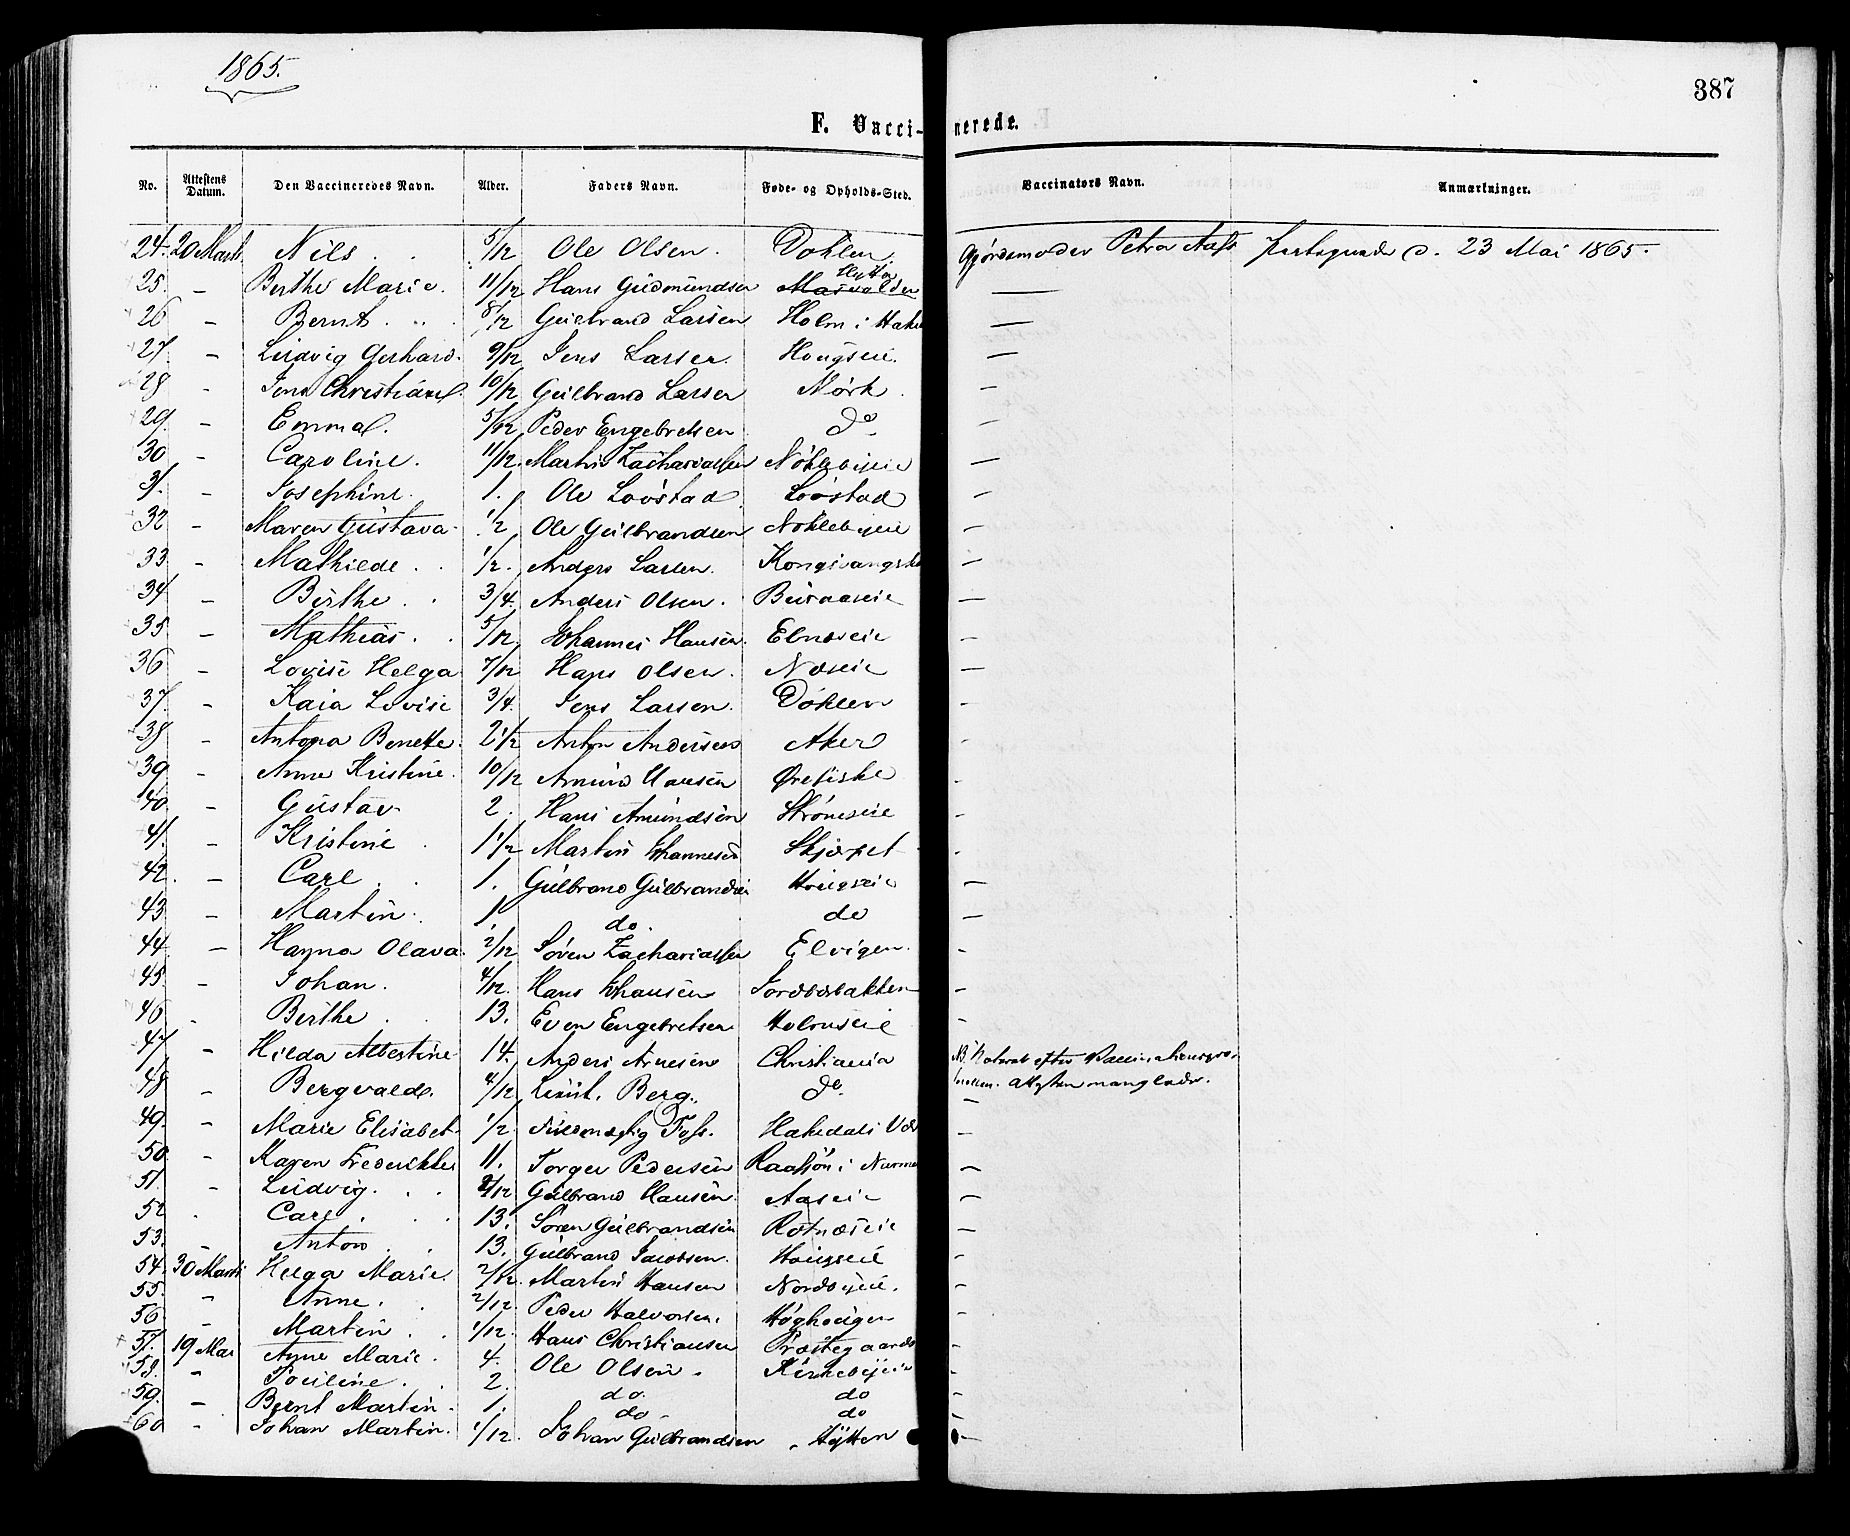 1865.
387
F. Vaccinerede.
No. Attestens Datum. Den Vaccineredes Navn. Alder. Faders Navn. Føde- og Opholds-Sted. Vaccinators Navn. Anmærkninger.
24. 20 Marts Nils 5/12 Ole Olsen. Døhlen. Gjordemoder Petra Aas d. 23 Mai 1865.
25. - Berthe Marie. 11/12 Hans Gudmundsen Hytten —
26 - Bernt 8/12 Gulbrand Larsen Holm i —
27. - Ludvig Gerhard. 9/12 Jens Larsen. Hougseie. —
28 - Jens Christian 10/12 Gulbrand Larsen Mørk. —
29. - Emma 5/12 Peder Engebretsen do —
30 - Caroline. 11/12 Martin Zachariassen —
31. - Josephine. 1. Ole Lovstad Lovstad —
32 - Maren Gustava. 1/2 Ole Gulbrandsen —
33 - Mathilde 1/2. Anders Larsen. —
34 - Berthe 3/4. Anders Olsen. —
35 - Mathias. 5/12. Johannes Hansen. —
36 - Lovise Helga 7/12 Hans Olsen. Næseie —
37. - Kaia Lovise 3/4. Jens Larsen. Døhlen —
38 - Antona Benette. 2 1/2 Anton Andersen Aker —
39 - Anne Kristine. 10/12 Amund Hansen Ørefiske -
40. - Gustav 2. Hans Amundsen Strømseie -
41. - Kristine 1 1/2 Martin Johannesen Skjærpet -
42. - Carl 1. Gulbrand Gulbrandsen Hougseie —
43 - Martin. 1 do. do —
44 - Hanna Olava. 2/12 Søren Zachariassen Elvigen. -
45. - Johan. 4/12. Hans Johansen -
46 - Berthe 13. Even Engebretsen Holmseie -
47 - Hilda Albertine 14. Anders Arnesen Christiania NB efter
48 - Bergvald. 4/12 Leut. Berg. do. Attesten manglede. —
49. - Marie Elisabet 1/2 Foss. Hakedals —
50 - Karen Frederikke 11. Torger Pedersen —
51. - Ludvig. 2/12 Gulbrand Hansen. Aaseie —
52 - Carl 13. Søren Gulbrandsen Rotnæseie -
53. - Anton 13. Gulbrand Jacobsen. Hougseie -
54. 30 Marts Helga Marie. 2/12. Martin Hansen -
55. - Anne. 2/12. Peder Halvorsen. Høghougen -
56 - Martin 1/12. Hans Christiansen -
57. 19 Mai Anne Marie. 4. Ole Olsen. -
58. - Pouline 2. do do -
59. - Bernt Martin. 1. do do -
60 - Johan Martin. 1/12. Johan Gulbrandsen Hytten —